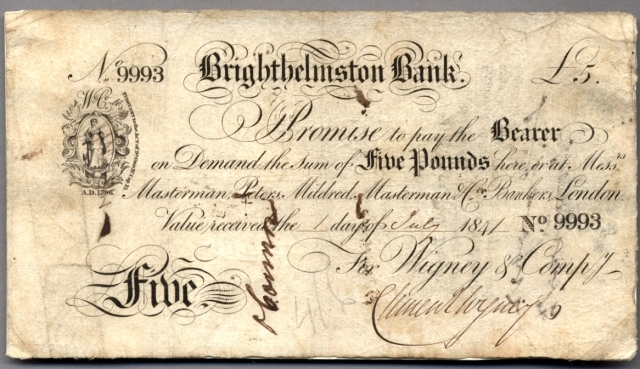 No. 9993 Brighthelmston Bank. £5.
WC
I Promise to pay the Bearer
on Demand the Sum of Five Pounds here, or at Mess.rs
A.D. 1796.
Masterman, Peters, Mildred, Masterman & Co. Bankers, London.
Value received the 1 day of July 1841 No 9993
For Wigney & Compy.
Five
Clement Wigney